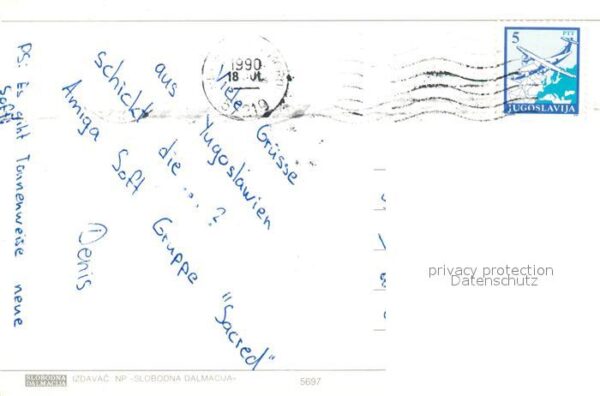 Viele Grüsse
aus Yugoslawien
schickt die...?
Amiga Soft Gruppe "Sacred"
Denis
PS: Es gibt Tonnenweise neue
Soft
1990
5
PTT
YUGOSLAVIJA
privacy protection
Datenschutz
SLOBODNA
DALMACIJA
IZDAVAČ: NP «SLOBODNA DALMACIJA»
5697